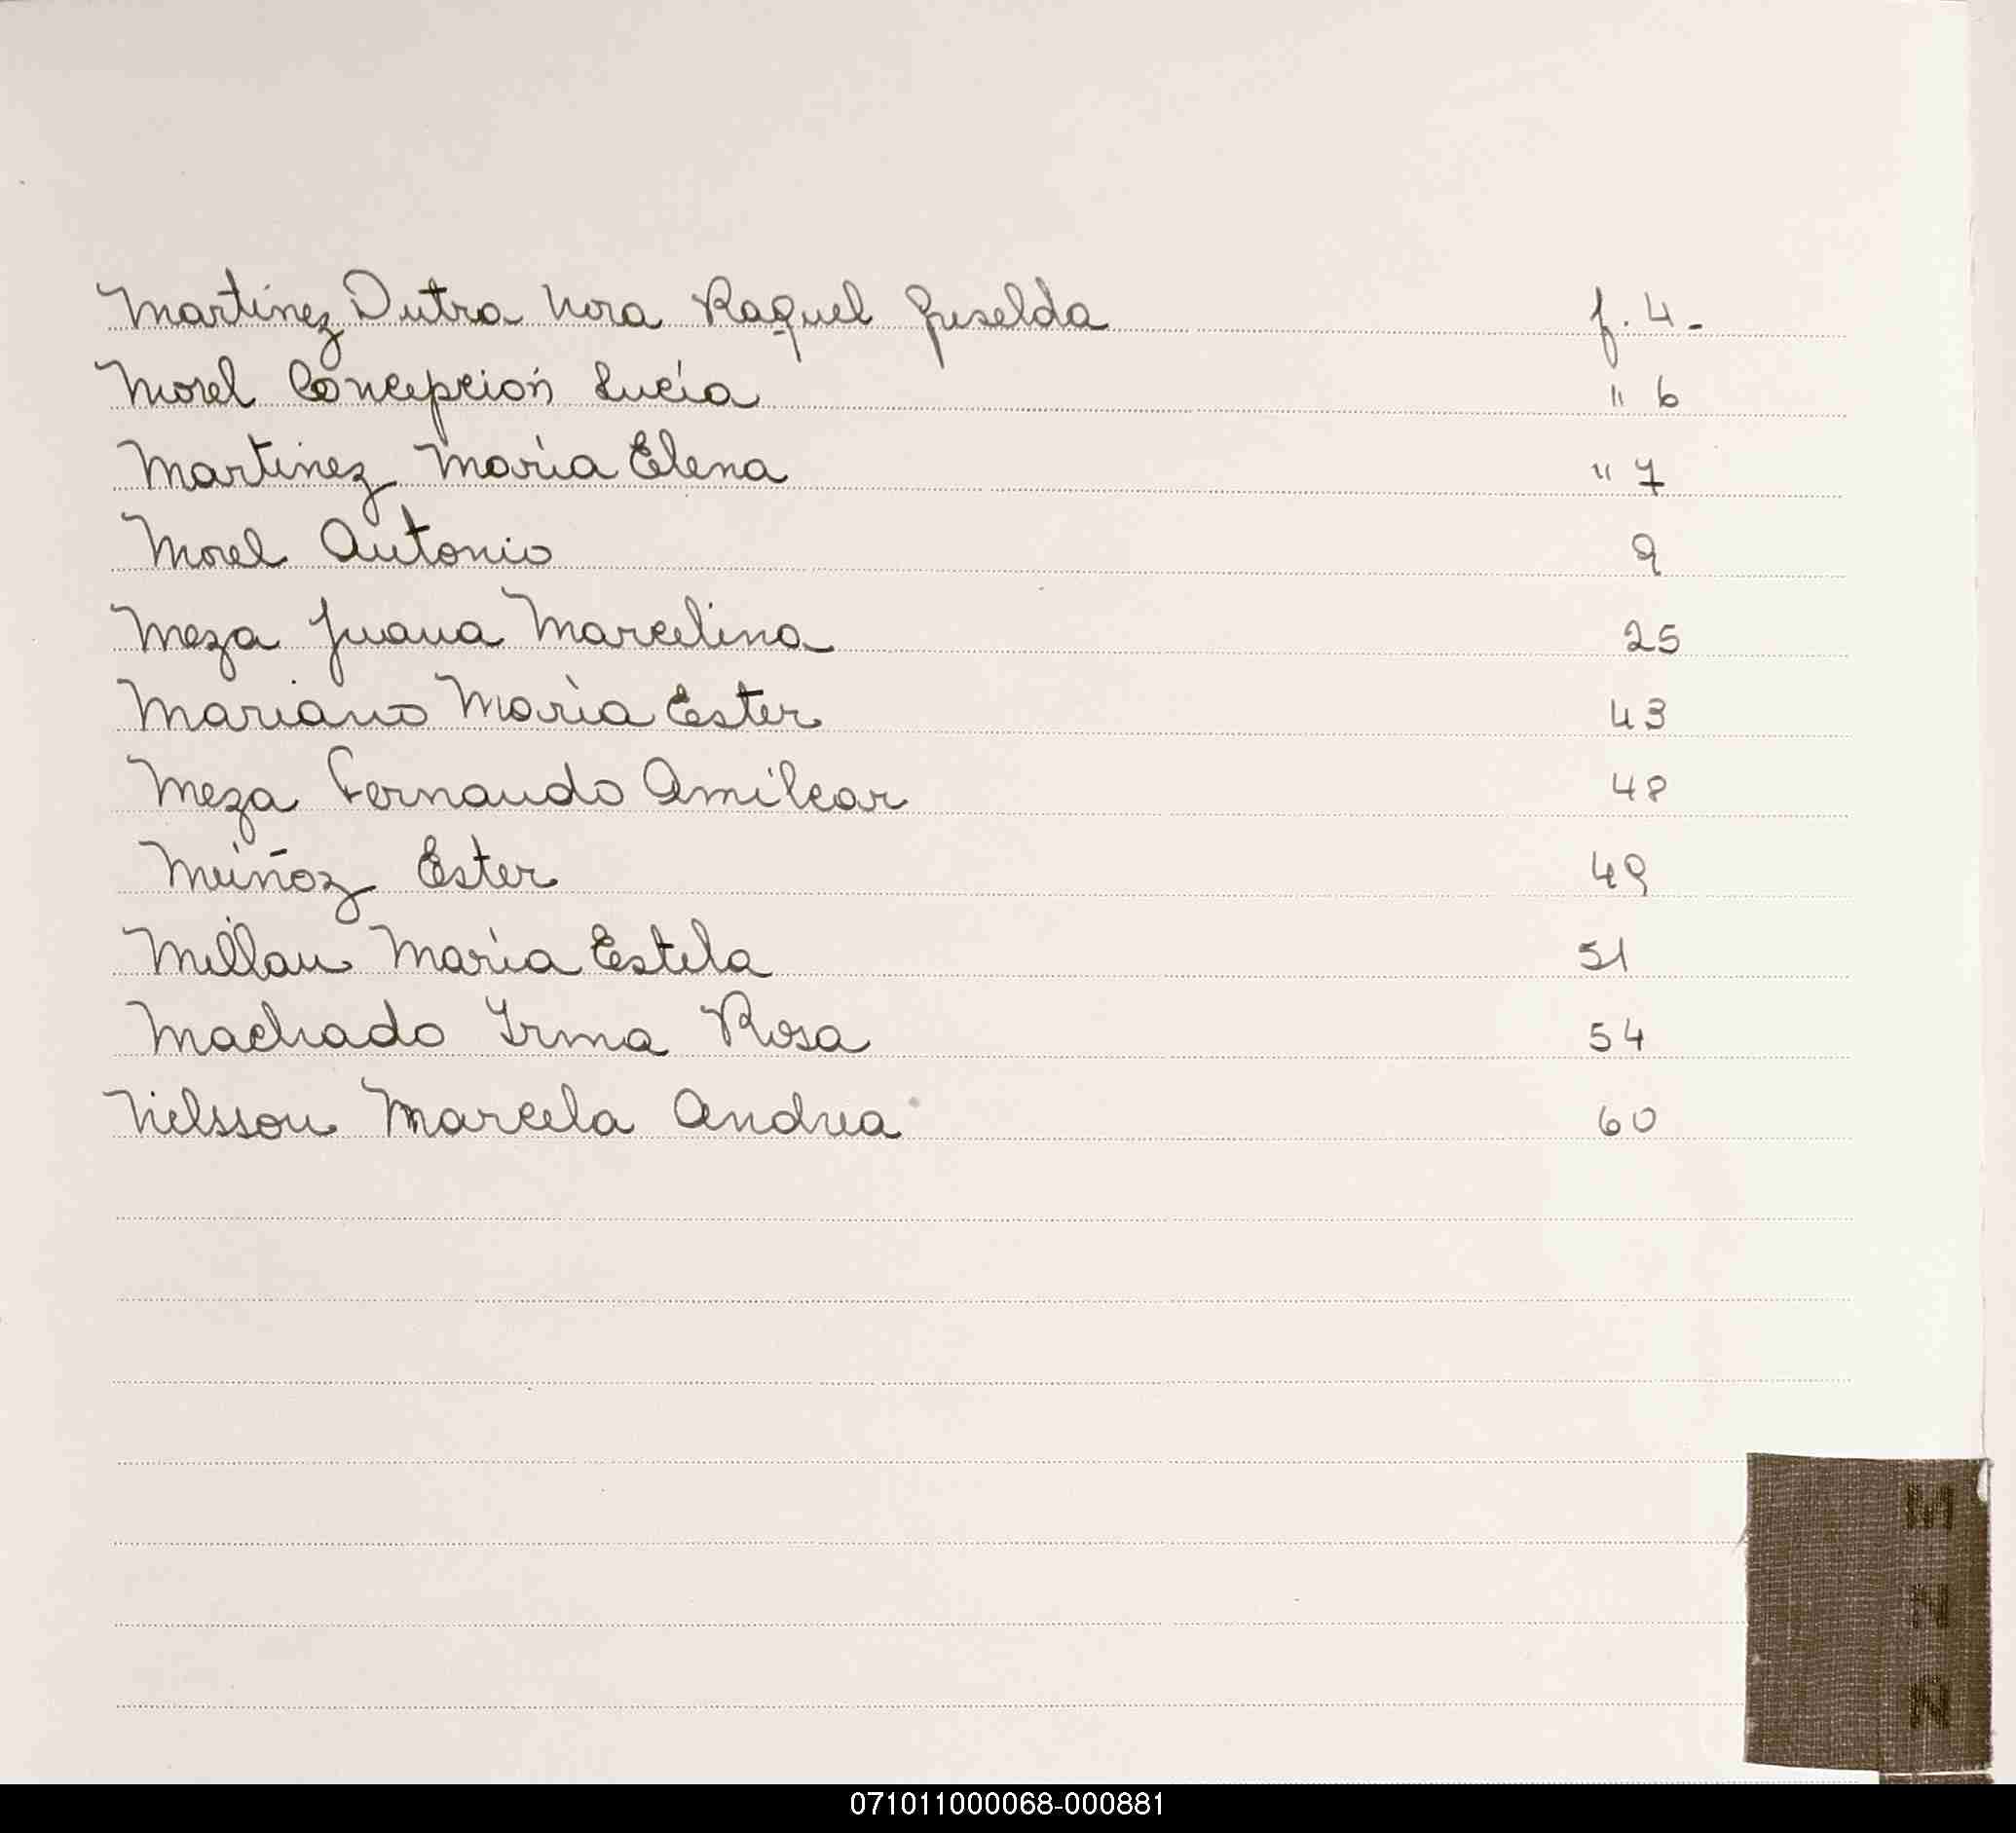 Martínez Dutra Nora Raquel Griselda f. 4-
Morel Concepción Lucía " 6
Martinez María Elena " 7
Morel Antonio 9
Meza Juana Marcelina 25
Mariano María Ester 43
Meza Fernando Amilcar 48
Muñoz Ester 49
Millan María Estela 51
Machado Irma Rosa 54
Nielsson Marcela Andrea 60
M
N
Ñ
071011000068-000881